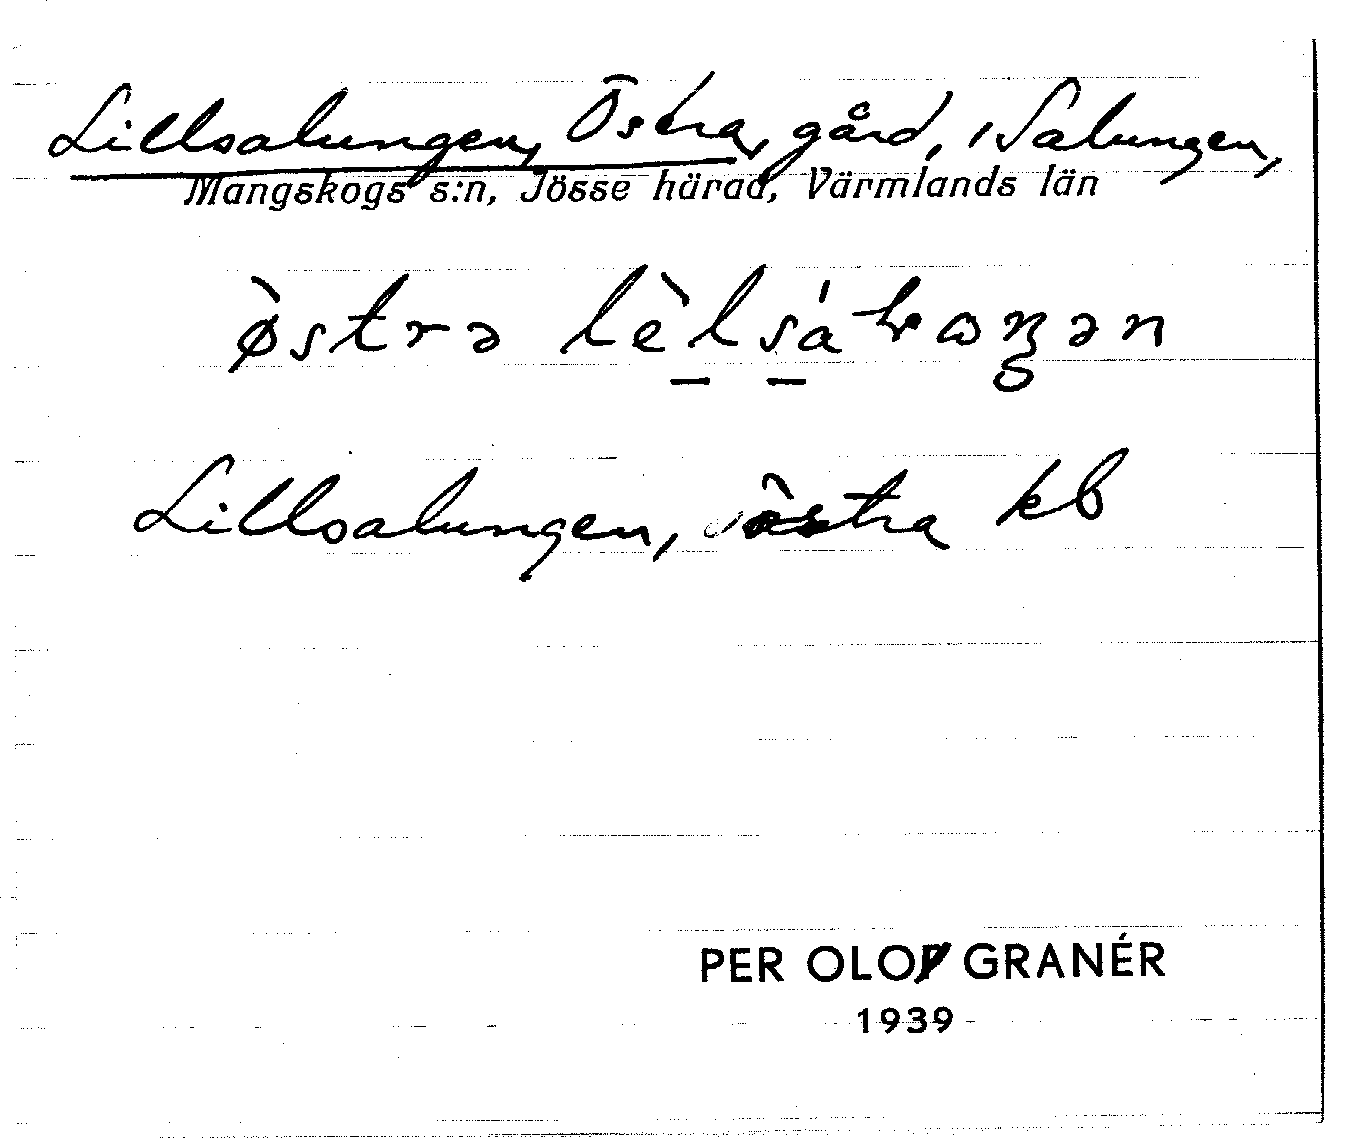 Lillsalungen, Östra, gård, i Salungen,
Mangskogs s:n, Jösse härad, Värmlands län
Lillsalungen, östra kb
PER OLOF GRANÉR
1939